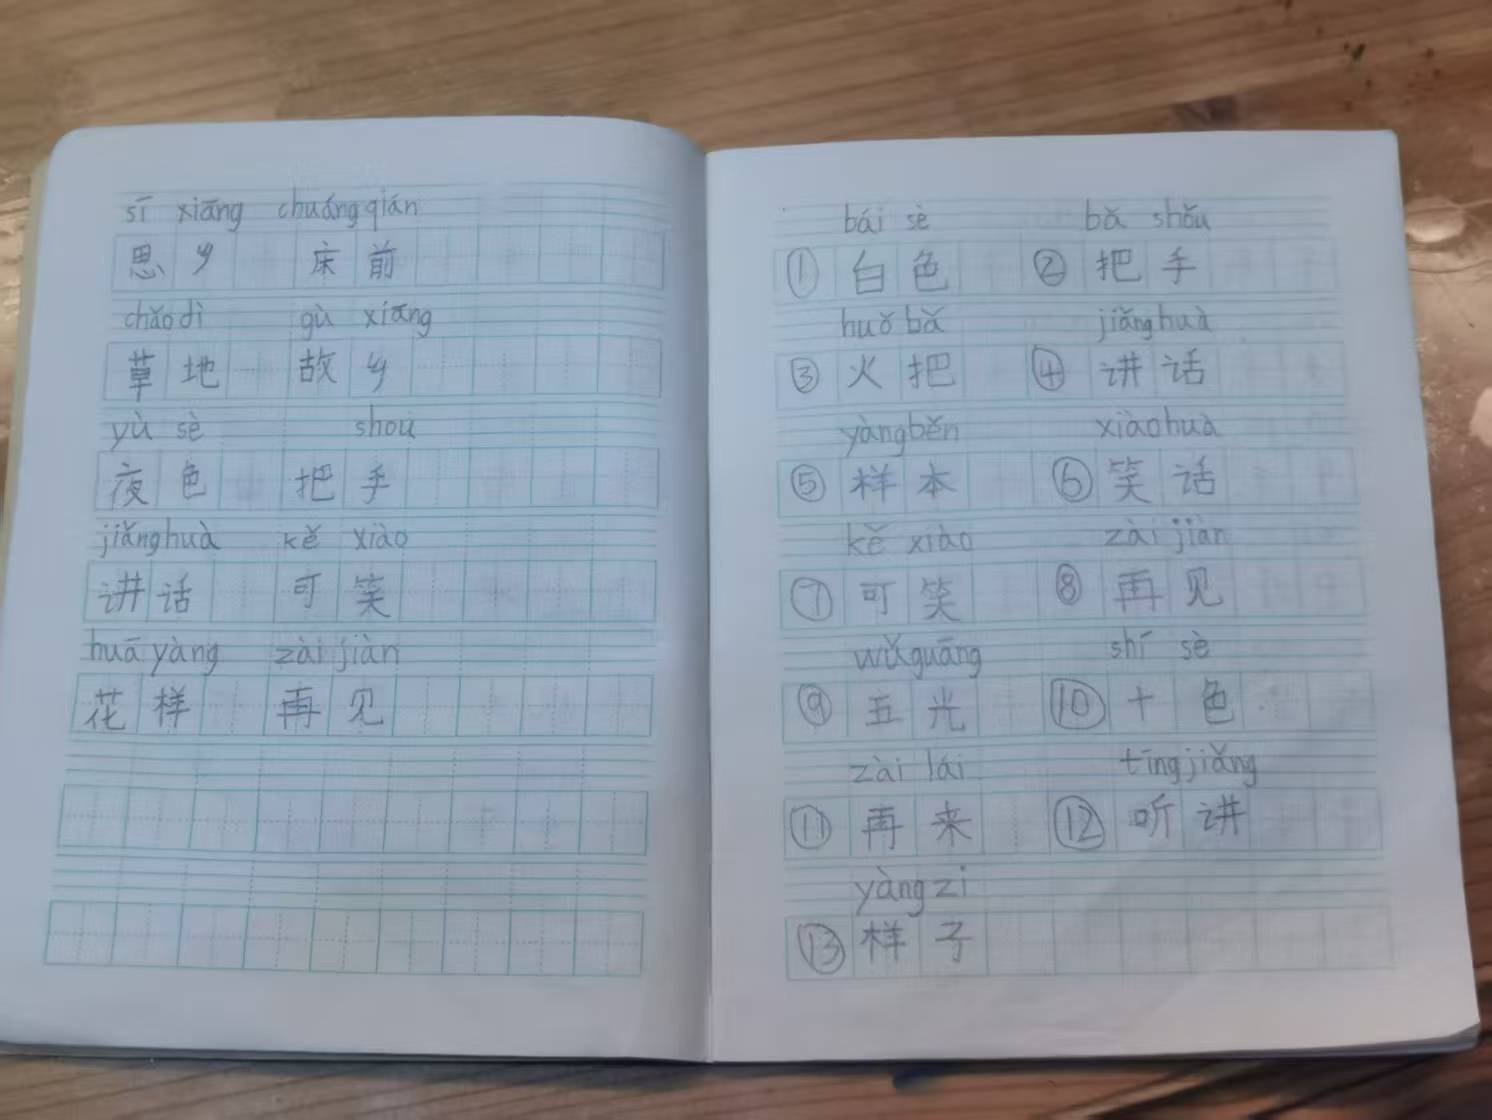 sī xiāng chuáng qián
思乡 床前
chǎo dì gù xiāng
草地 故乡
yù sè shou
夜色 把手
jiǎng huà kě xiào
讲话 可笑
huā yàng zài jiàn
花样 再见
bái sè bǎ shǒu
① 白色 ② 把手
huǒ bǎ jiǎng huà
③ 火把 ④ 讲话
yàng běn xiào huà
⑤ 样本 ⑥ 笑话
kě xiào zài jiàn
⑦ 可笑 ⑧ 再见
wǔ guāng shí sè
⑨ 五光 ⑩ 十色
zài lái tīng jiǎng
⑪ 再来 ⑫ 听讲
yàng zi
⑬ 样子